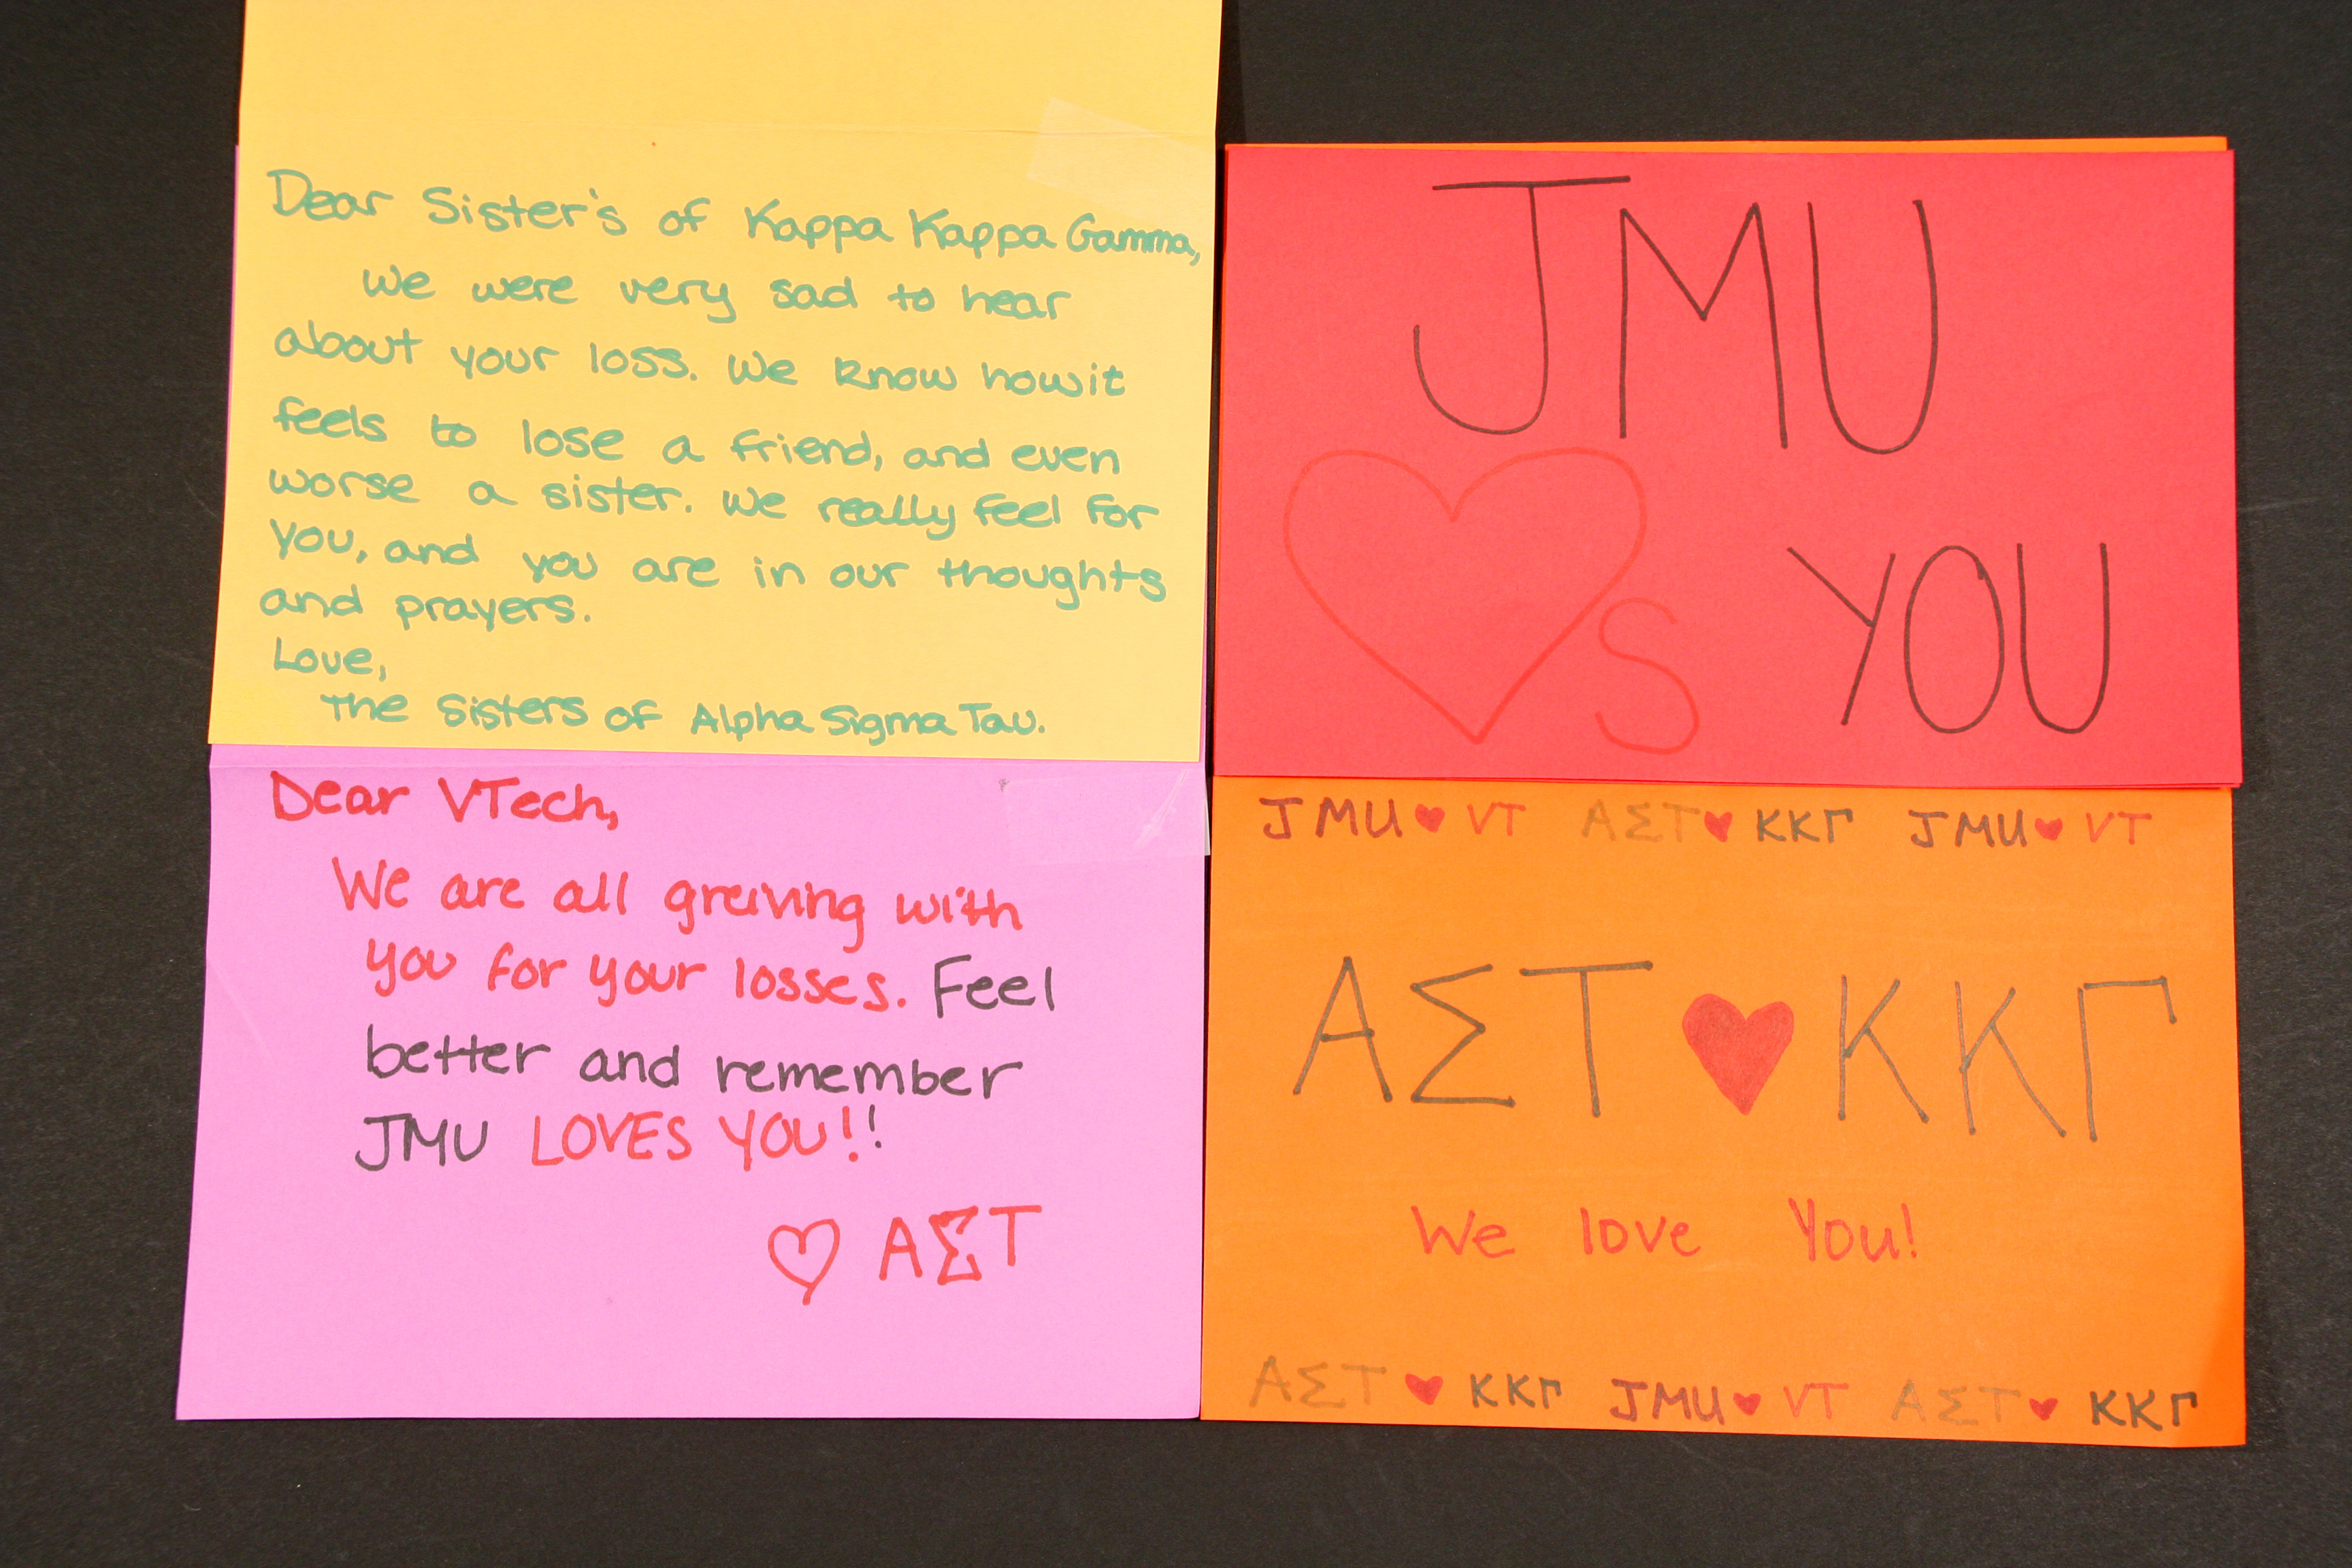 Dear Sister's of Kappa Kappa Gamma,
We were very sad to hear
about your loss. We know how it
feels to lose a friend, and even
worse a sister. We really feel for
you, and you are in our thoughts
and prayers.
Love,
the Sisters of Alpha Sigma Tau.
JMU
♥s YOU
Dear VTech,
We are all greiving with
you for your losses. Feel
better and remember
JMU LOVES YOU!!
♡ ΑΣΤ
JMU ♥ VT ΑΣΤ ♥ ΚΚΓ JMU ♥ VT
ΑΣΤ ♥ ΚΚΓ
We love You!
ΑΣΤ ♥ ΚΚΓ JMU ♥ VT ΑΣΤ ♥ ΚΚΓ